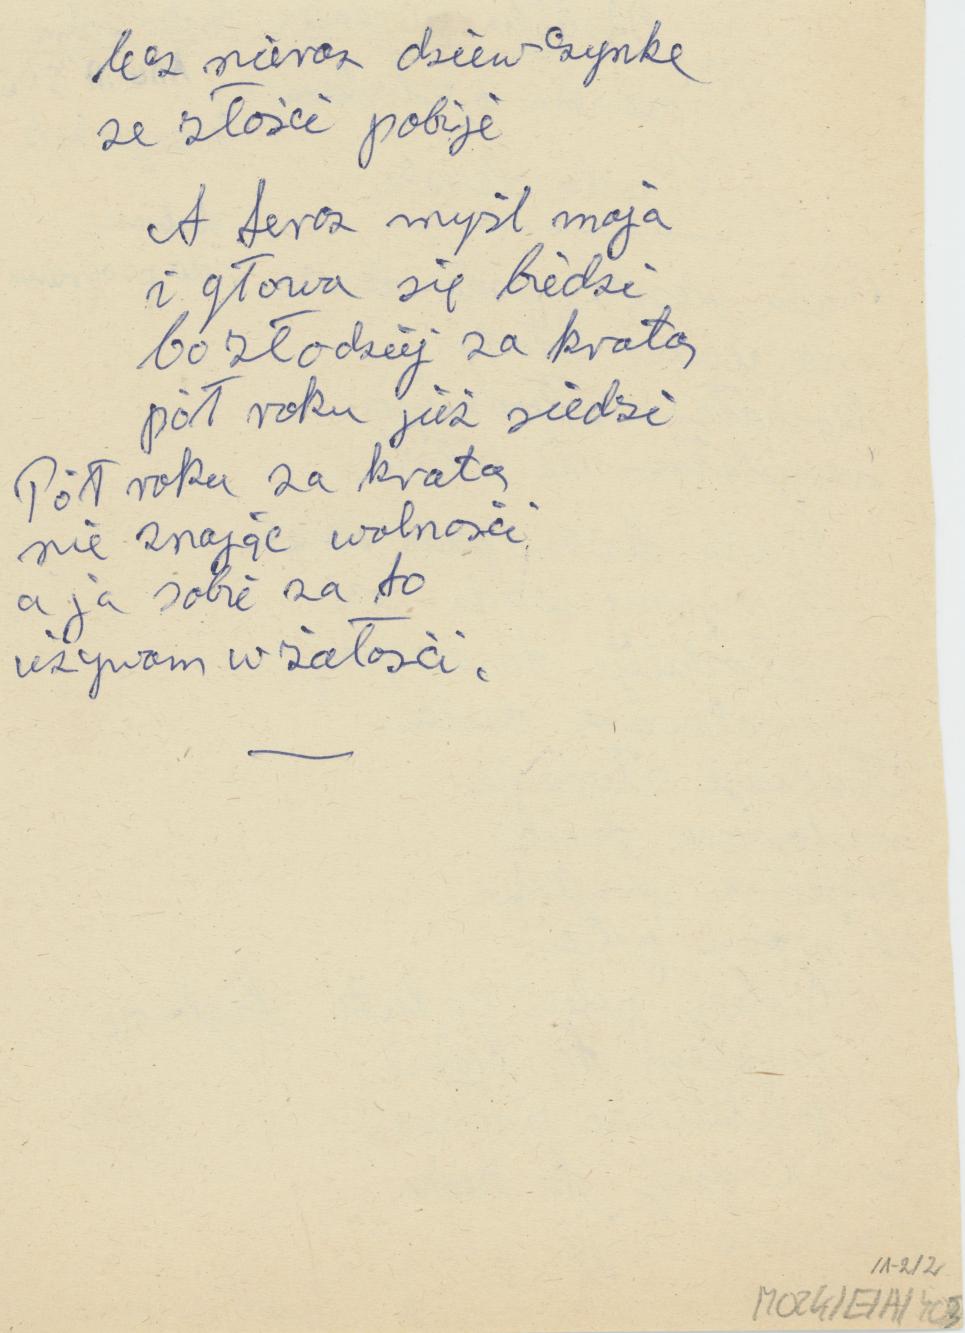 lecz nieraz dziewczynke
ze złości pobije
A teraz myśl moja
i głowa się biedzi
bo złodziej za kratą
pół roku już siedzi
Pół roku za kratą
nie znając wolności
a ja sobie za to
używam w żałości.
11-2/2